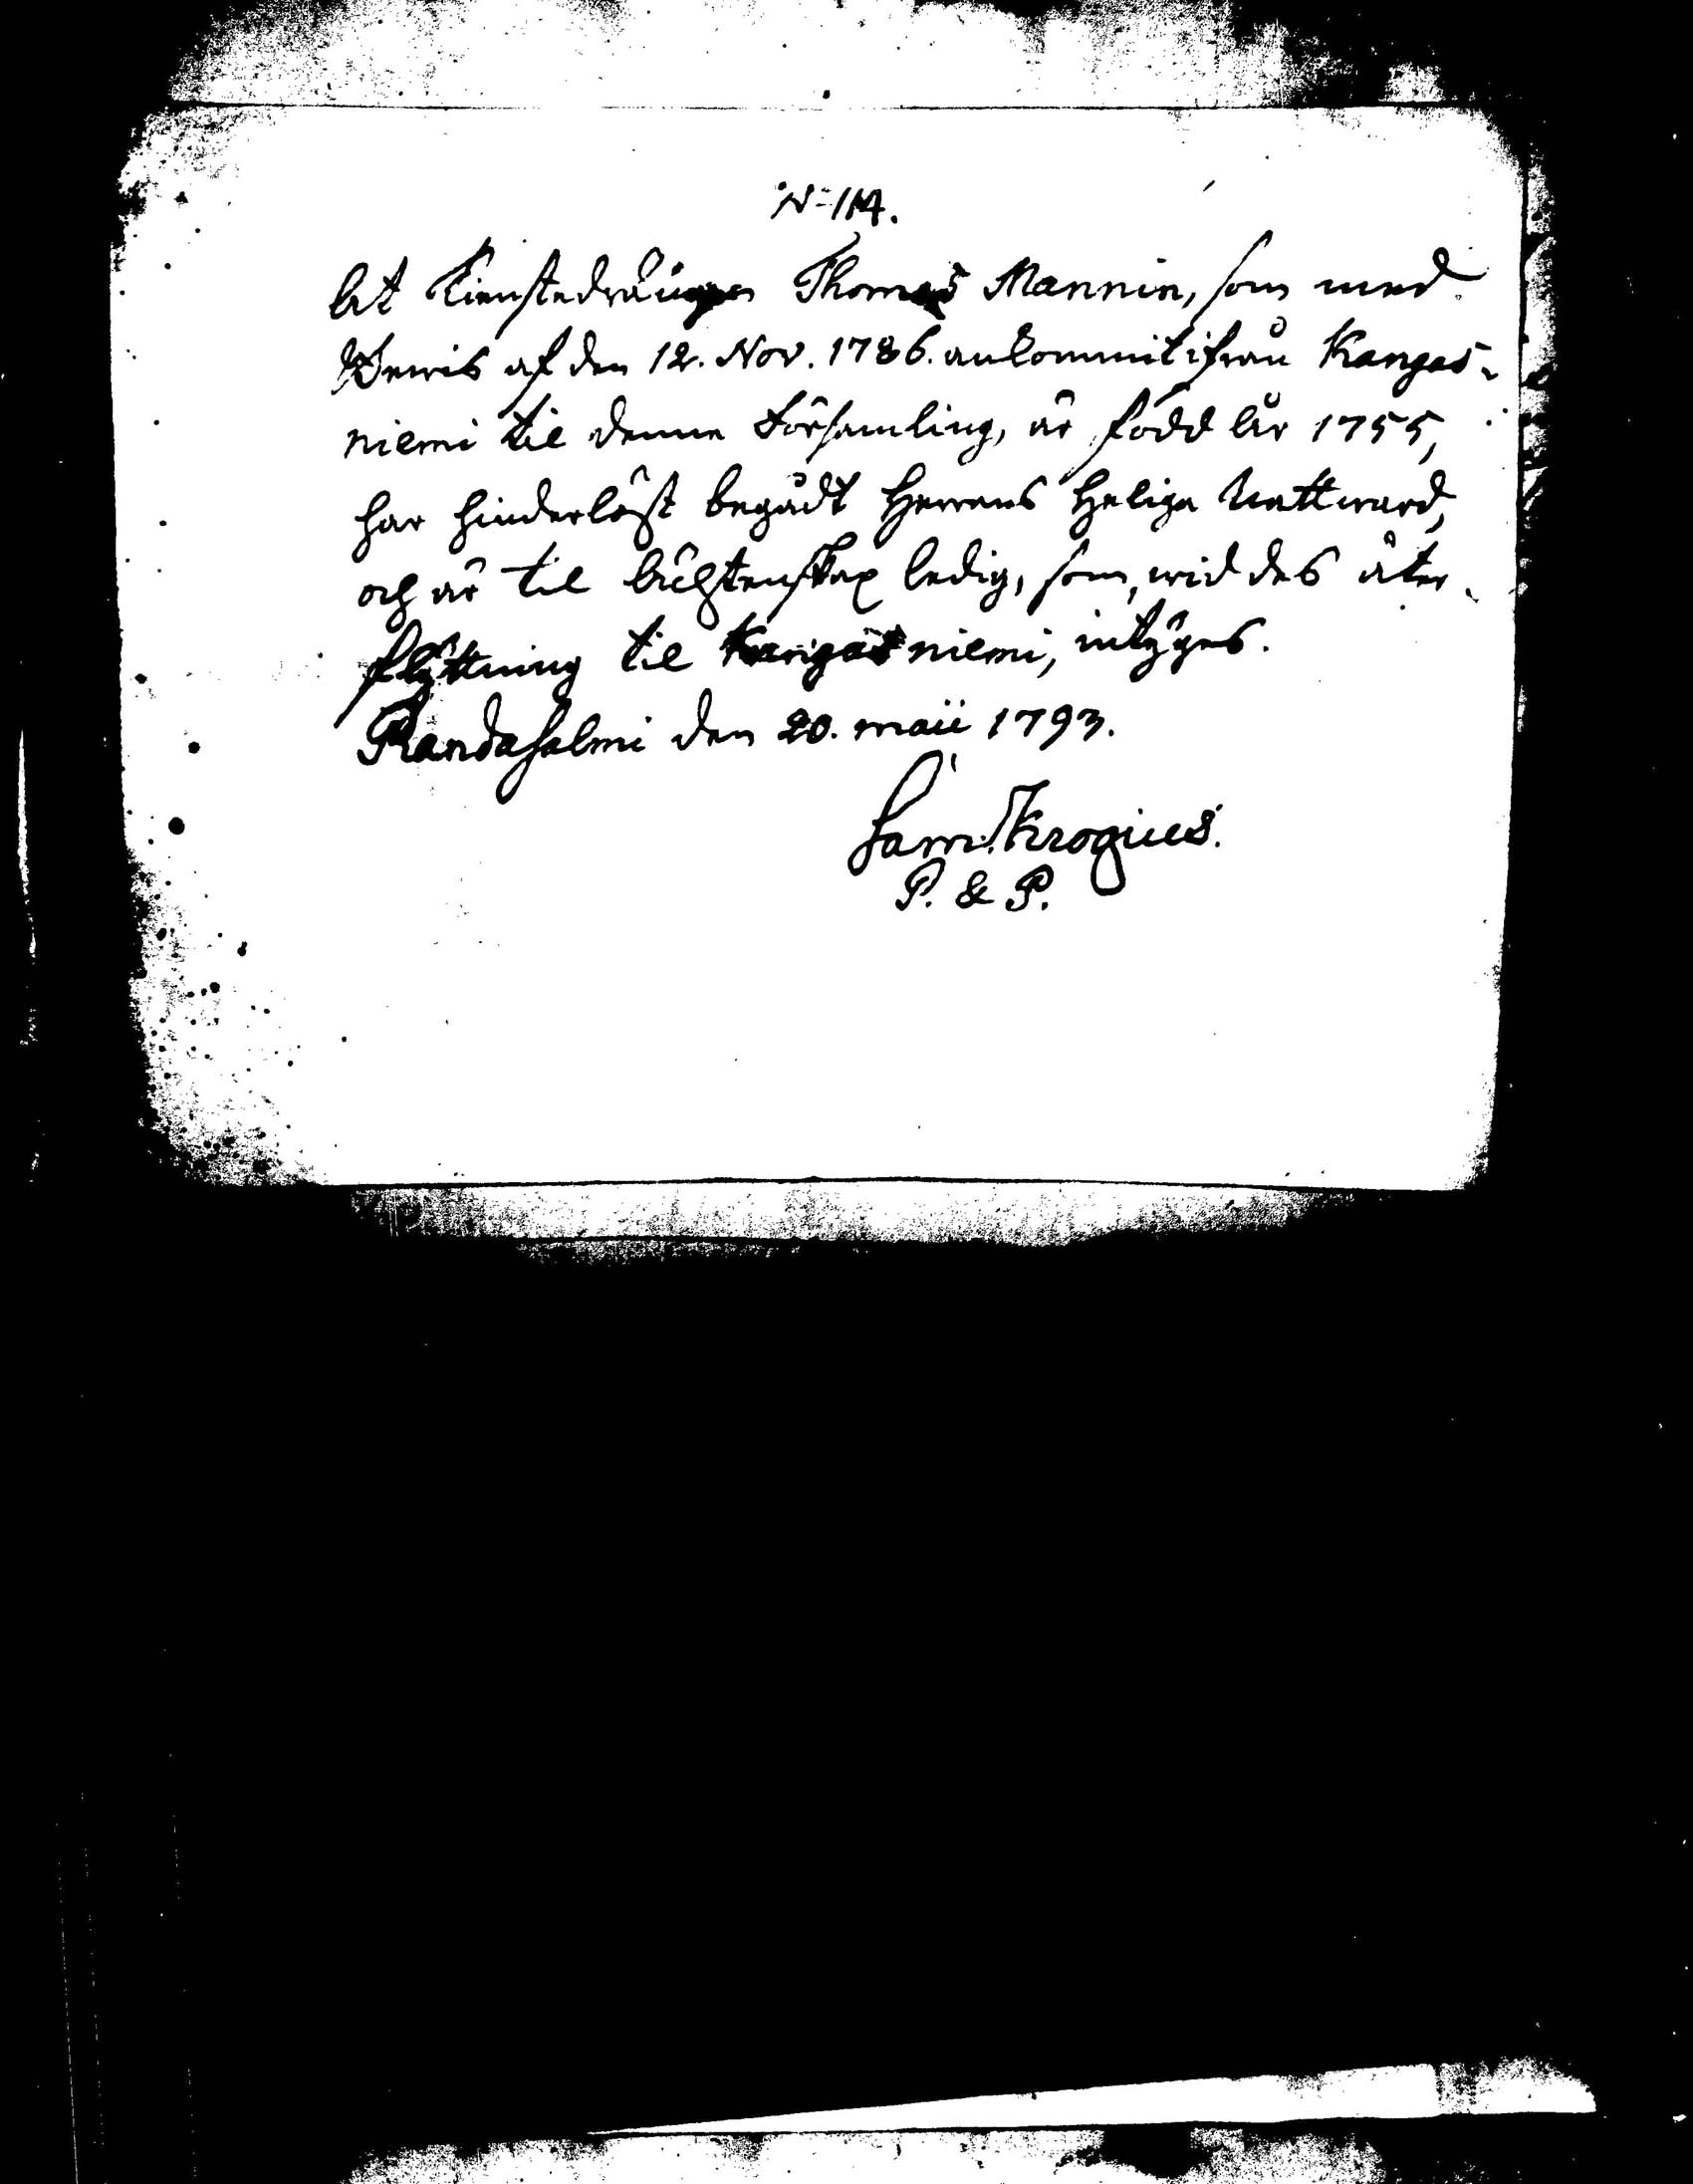 N=114.
At Tienstedrängen Thomas Mannin, som med
Bewis af den 12. Nov. 1786. ankommit ifrån Kangas-
niemi til denna Församling, är född År 1755,
har hinderlöst begådt Herrans Heliga Nattward,
och är til Ächtenskap ledig, som, wid des åter-
flyttning til Kangasniemi, intygas.
Randasalmi den 20. Maii 1793.
Sam. Krogius.
P. & P.